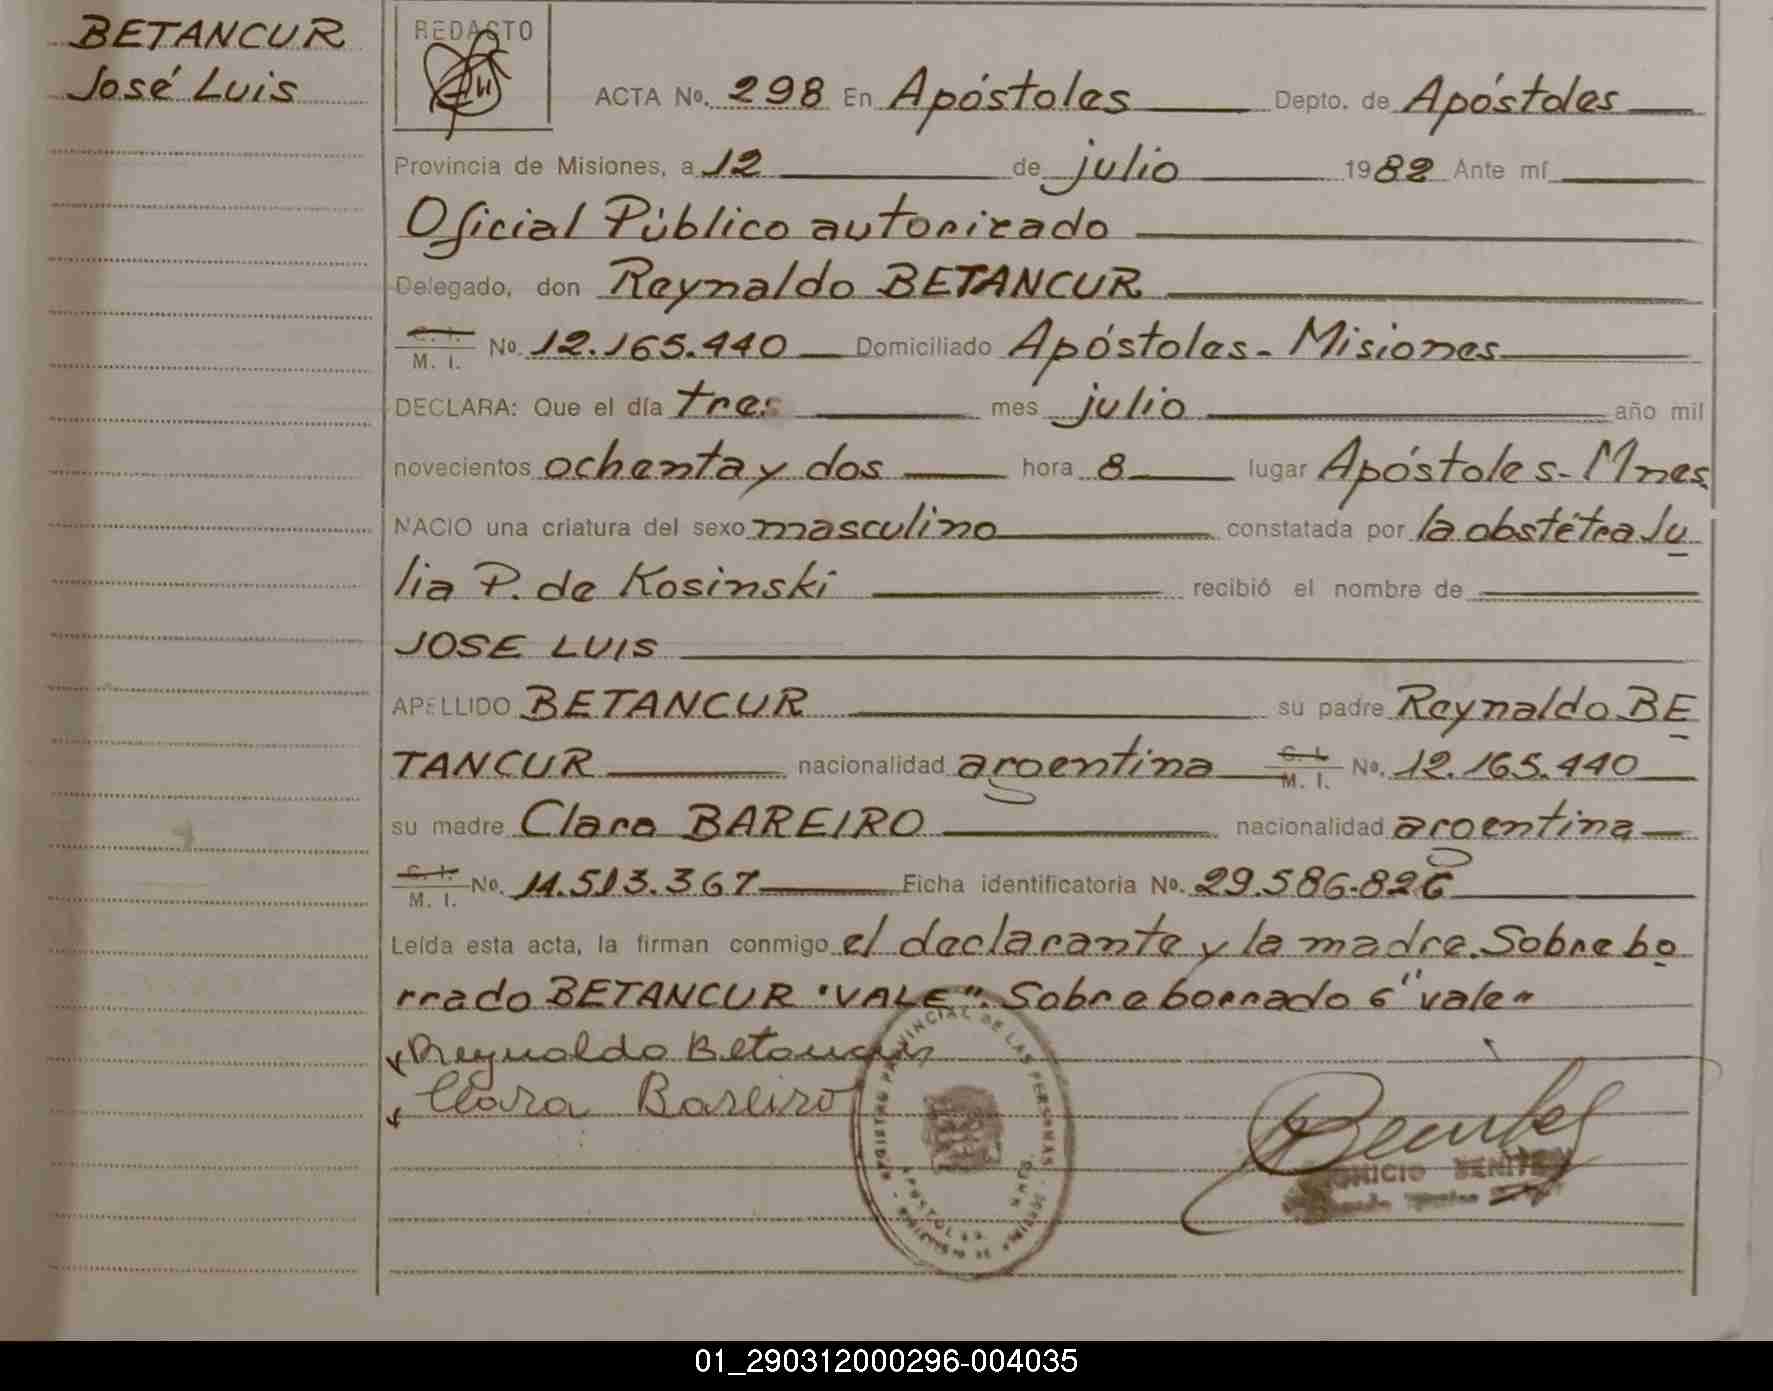 BETANCUR
José Luis
REDACTO
ACTA No. 298 En Apóstoles Depto. de Apóstoles
Provincia de Misiones, a 12 de julio 1982 Ante mí
Oficial Público autorizado
Delegado, don Reynaldo BETANCUR
C. I. M. I. No. 12.165.440 Domiciliado Apóstoles - Misiones
DECLARA: Que el día tres mes julio año mil
novecientos ochenta y dos hora 8 lugar Apóstoles - Mnes
NACIO una criatura del sexo masculino constatada por la obstétra Ju
lia P. de Kosinski recibió el nombre de
JOSE LUIS
APELLIDO BETANCUR su padre Reynaldo BE
TANCUR nacionalidad argentina C. I. M. I. No. 12.165.440
su madre Clara BAREIRO nacionalidad argentina
C. I. M. I. No. 14.513.367 Ficha identificatoria No. 29.586.826
Leída esta acta, la firman conmigo el declarante y la madre. Sobre bo
rrado BETANCUR "VALE". Sobre borrado 6 "vale"
Reynaldo Betancur
Clara Bareiro
REGISTRO PROVINCIAL DE LAS PERSONAS
APOSTOLES
BENITEZ
01_290312000296-004035